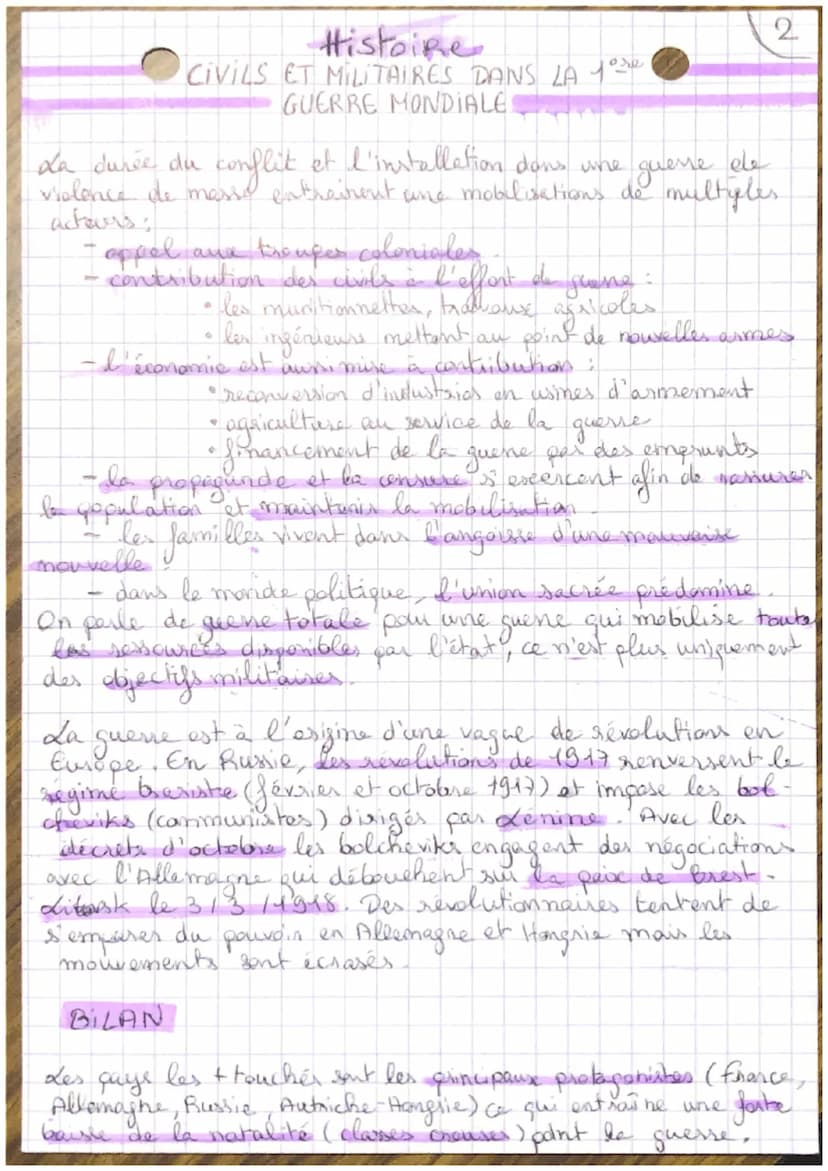 2
Histoire
CIVILS ET MILITAIRES DANS LA 1ère
GUERRE MONDIALE
La durée du conflit et l'installation dans une guerre de
violence de masse entrainent une mobilisations de multiples
acteurs :
- appel aux troupes coloniales.
- contribution des civils à l'effort de guerre :
• les munitionnettes, travaux agricoles
• les ingénieurs mettent au point de nouvelles armes
- l'économie est aussi mise à contribution :
• reconversion d'industries en usines d'armement
• agriculture au service de la guerre
• financement de la guerre par des emprunts
- la propagande et la censure s'exercent afin de rassurer
la population et maintenir la mobilisation.
- les familles vivent dans l'angoisse d'une mauvaise
nouvelle
- dans le monde politique, l'union sacrée prédomine.
On parle de guerre totale pour une guerre qui mobilise toute
les ressources disponibles par l'état, ce n'est plus uniquement
des objectifs militaires.
La guerre est à l'origine d'une vague de révolutions en
Europe. En Russie, les révolutions de 1917 renversent le
régime tsariste (février et octobre 1917) et impose les bol-
cheviks (communistes) dirigés par Lénine. Avec les
décrets d'octobre les bolcheviks engagent des négociations
avec l'Allemagne qui débouchent sur la paix de Brest-
Litovsk le 3/3/1918. Des révolutionnaires tentent de
s'emparer du pouvoir en Allemagne et Hongrie mais les
mouvements sont écrasés.
BILAN
Les pays les + touchés sont les principaux protagonistes (France,
Allemagne, Russie, Autriche-Hongrie) ce qui entraîne une forte
baisse de la natalité (classes creuses) pdnt la guerre.